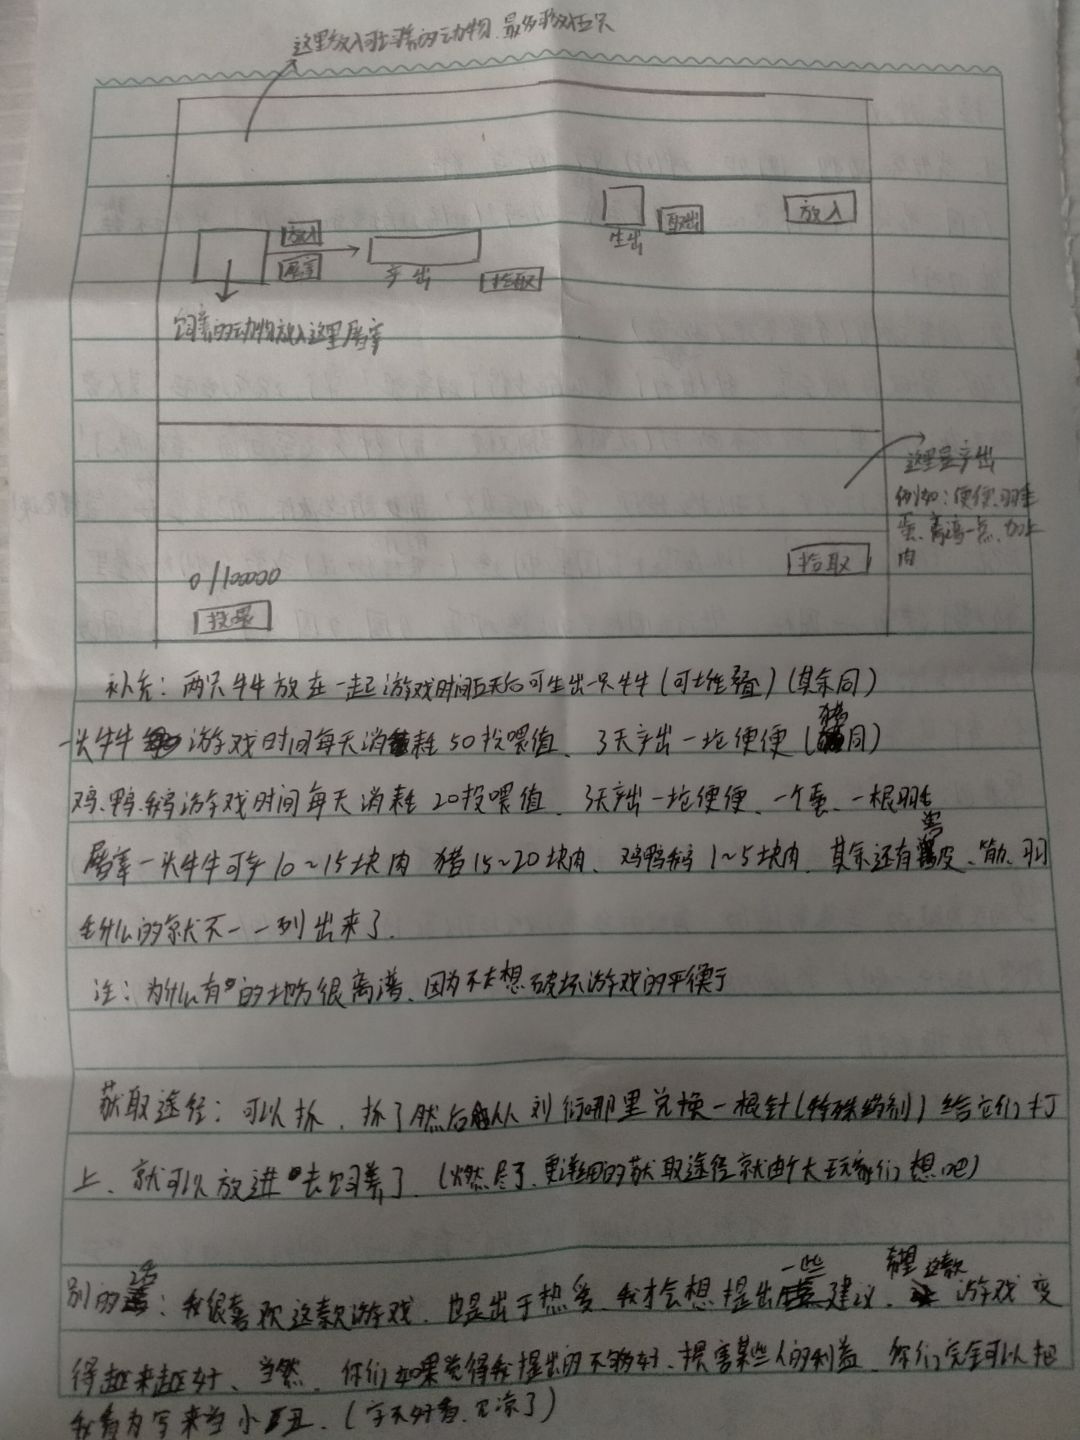 这里放入可饲养的动物,最多可放五只
放入
生出
取出
放入
屠宰
产出
拾取
饲养的动物放入这里屠宰
这里是产出
例如:便便、羽毛
蛋、离谱一点,加上
肉
拾取
0/100000
投喂
补充:两只牛牛放在一起游戏时间五天后可生出一只牛牛(可堆叠)(其余同)
一头牛牛游戏时间每天消耗50投喂值、3天产出一坨便便(猪同)
鸡、鸭、鹅游戏时间每天消耗20投喂值、3天产出一坨便便、一个蛋、一根羽毛
屠宰一头牛牛可产10~15块肉 猪15~20块肉、鸡鸭鹅1~5块肉、其余还有兽皮、筋、羽
毛什么的就不一一列出来了.
注:为什么有的地方很离谱、因为不太想破坏游戏的平衡于
获取途径:可以抓、抓了然后从刘衍哪里兑换一根针(特殊级别)给它们打
上、就可以放进去饲养了、(燃尽了、更详细的获取途径就由个大玩家们想吧)
别的话:我很喜欢这款游戏、也是出于热爱、我才会想提出一些建议、希望这款游戏变
得越来越好、当然、你们如果觉得我提出的不够好、损害某些人的利益、你们完全可以把
我看为写来当小丑、(字不好看、见凉了)